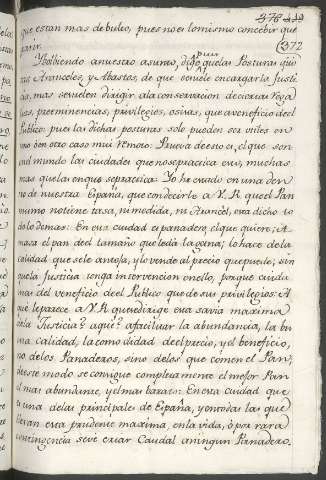 372
que estan mas debulto, pues no es lo mismo concebir que
parir.
Y bolbiendo a nuestro asunto, digo pues que las Posturas
Aranceles, y Abastos, de que se suele encargar la Justi
cia, mas se suelen dirigir, a la conservacion de ciertas rega
lias, preeminencias, privilegios, que a veneficio del
Publico: pues las dichas posturas solo pueden ser utiles en
uno ù en otro caso mui remoto. Prueva de esto es, el que son
en el mundo las ciudades que no se practica esto, muchas
mas que las en que se practica. Yo he estado en una den
tro de nuestra España, que con decirle a V.R. que el Pan
no tiene tasa, ni medida, ni Arancèl, està dicho to
do lo demas. En esta ciudad es panadero, el que quiere; A
masa el pan del tamaño que le dà la gana; lo hace de la
calidad que se le antoja, y lo vende al precio que puede; sin
que la Justicia tenga intervencion en ello, porque cuida
mas del veneficio del Publico que de sus privilegios: A
que le parece a V.R. que se dirige esta savia maxima
de la Justicia? a què? a facilitar la abundancia, la bu
ena calidad, la comodidad del precio, y el beneficio,
no de los Panaderos, sino de los que comen el Pan,
de este modo se consigue completamente el mejor Pan
el mas abundante, y el mas barato: En esta ciudad que
es una de las principales de España, y en todas las que
llevan esta prudente maxima, en la vida, ò por rara
contingencia se ve estar Caudal a ningun Panadero.